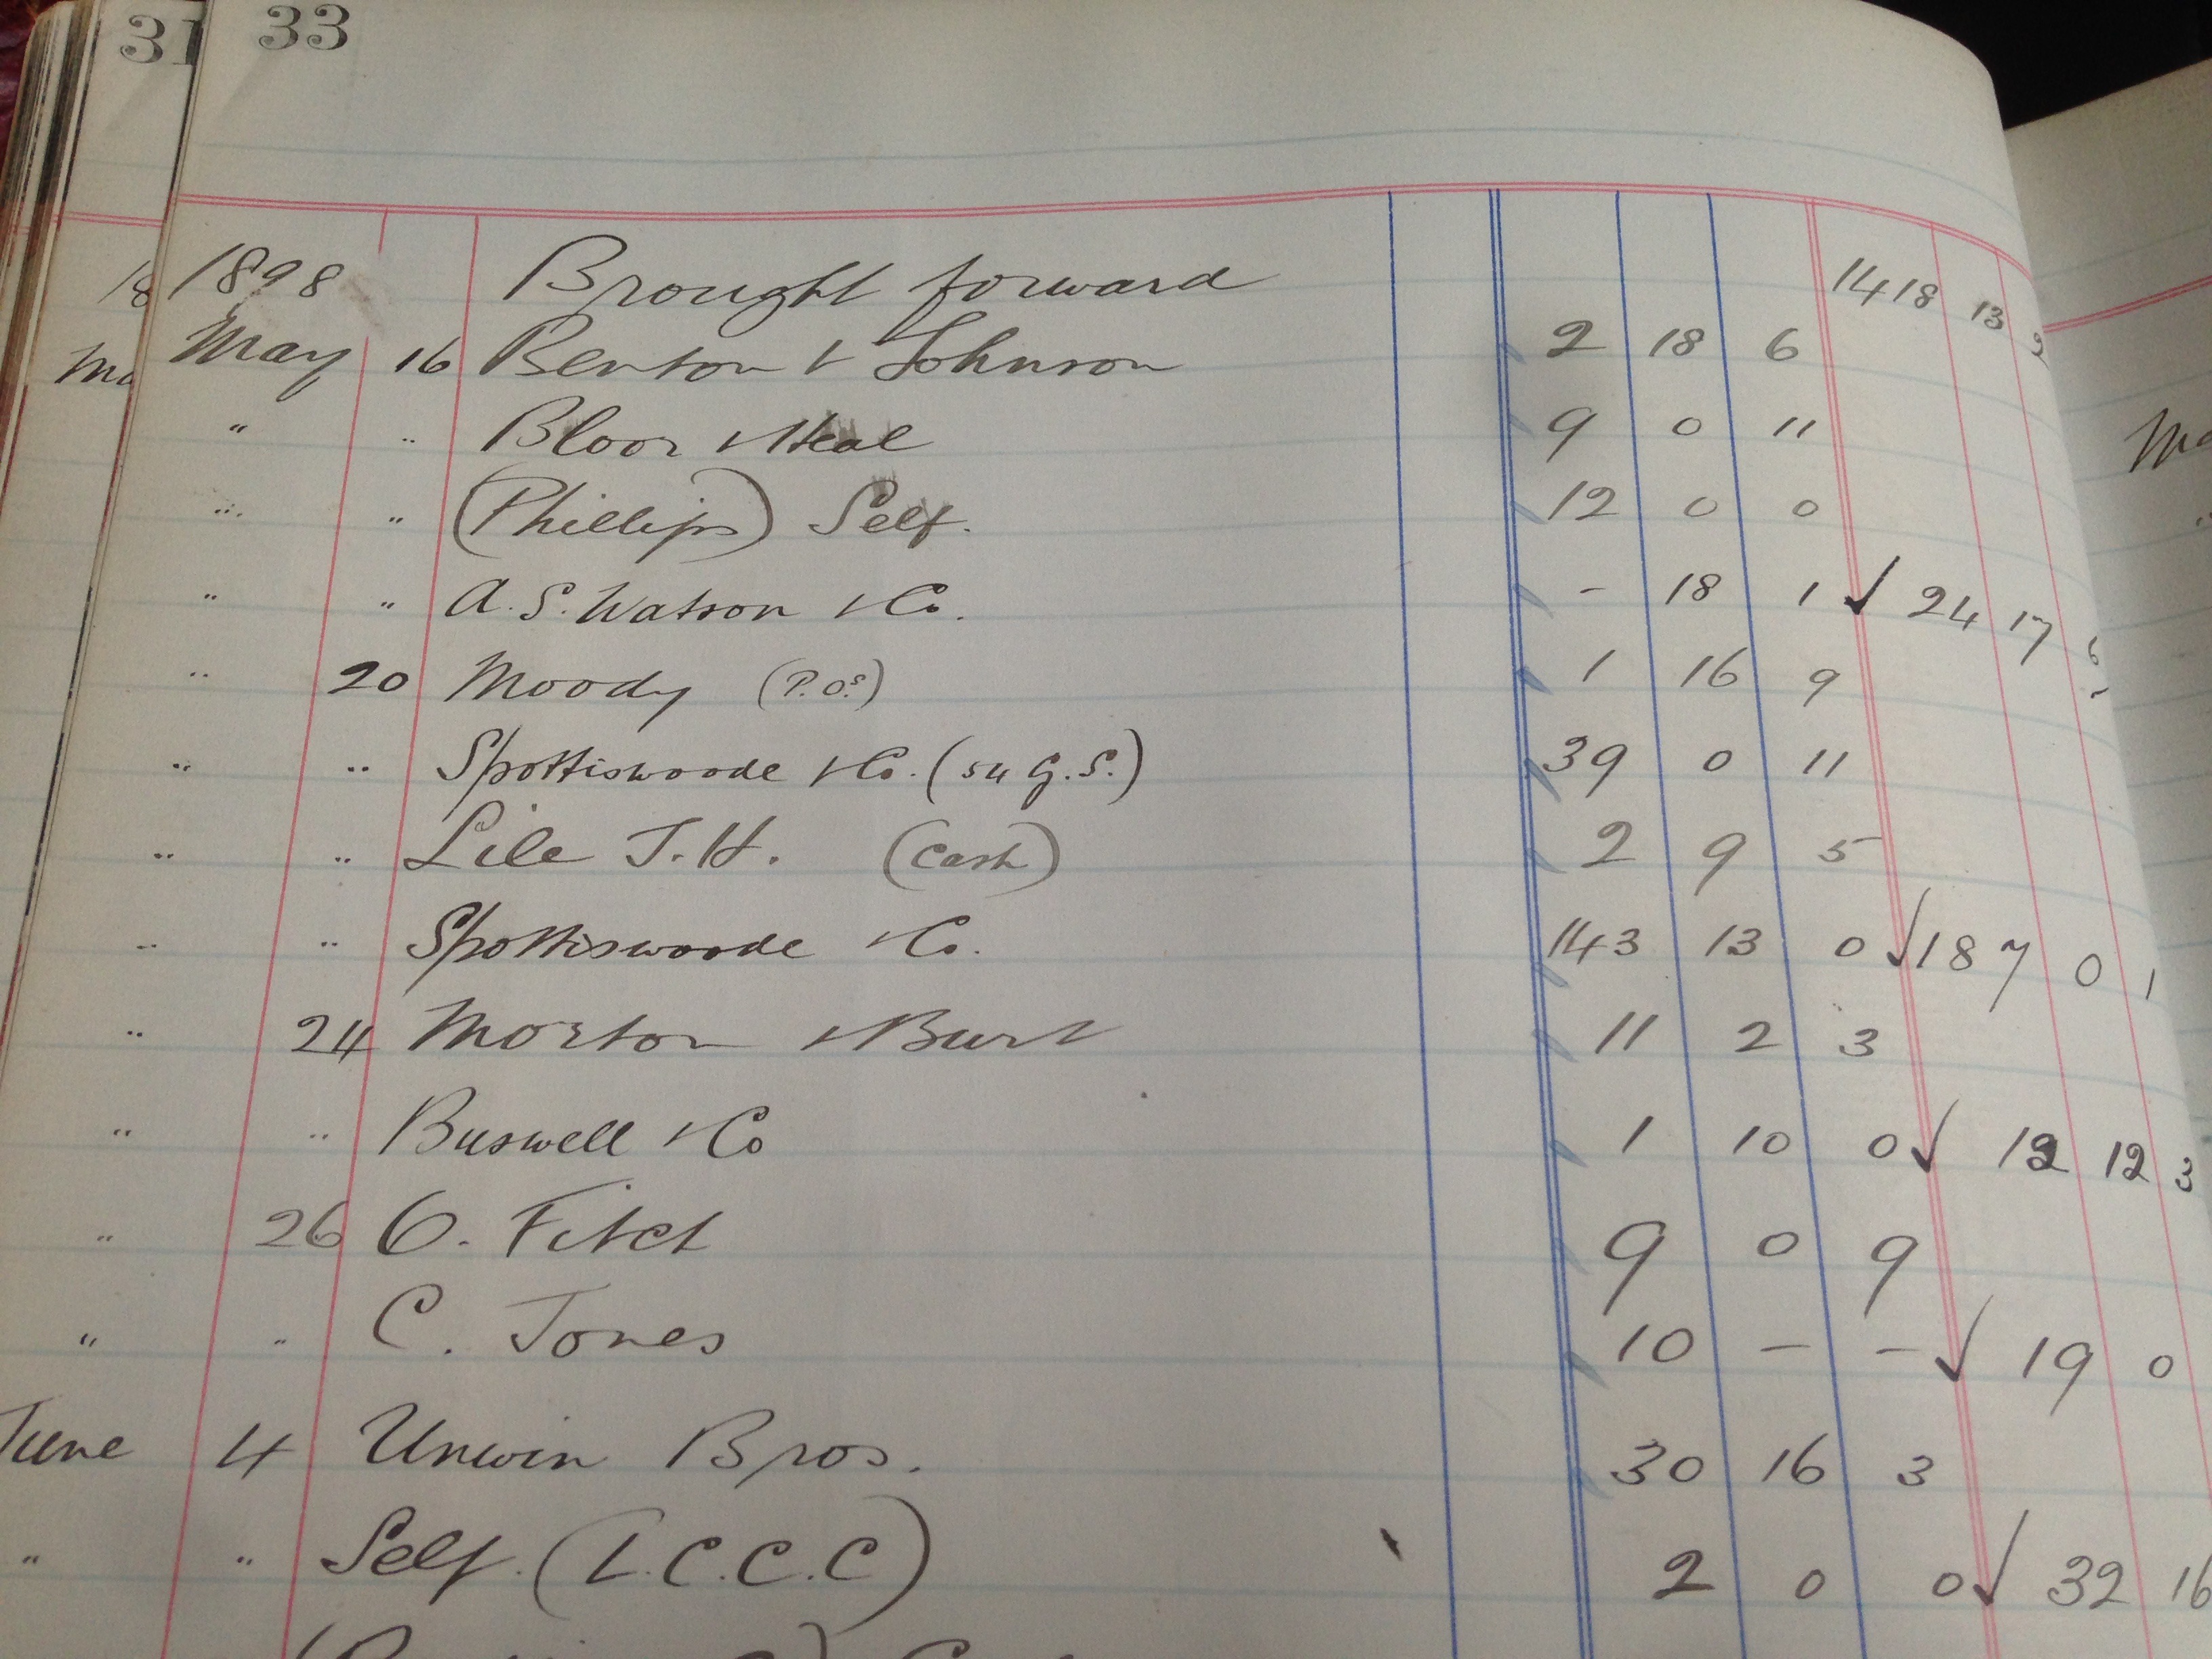 31 33
1898 Brought forward 1418 13
May 16 Benton & Johnson 2 18 6
" " Bloor & Heal 9 0 11
" " (Phillips) Self. 12 0 0
" " A. S. Watson & Co. - 18 1 ✓ 24 17 6
" 20 Moody (P.O.s) 1 16 9
" " Spottiswoode & Co. (54 G.S.) 39 0 11
" " Lile J.H. (Cash) 2 9 5
" " Spottiswoode & Co. 143 13 0 ✓ 187 0 1
" 24 Morton & Burt 11 2 3
" " Buswell & Co 1 10 0 ✓ 12 12 3
" 26 O. Fitch 9 0 9
" " C. Jones 10 - - ✓ 19 0
June 4 Unwin Bros. 30 16 3
" " Self. (L.C.C.C) 2 0 0 ✓ 32 16